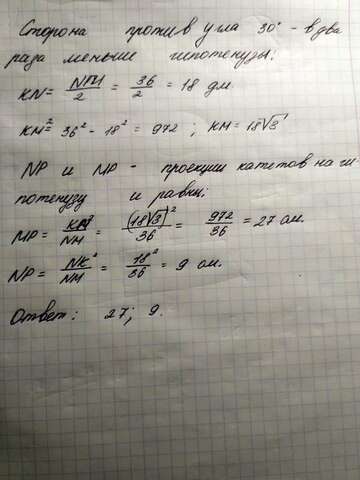 Сторона против угла 30° - в два
раза меньше гипотенузы.
KN = NM/2 = 36/2 = 18 дм
KM² = 36² - 18² = 972 ; KM = 18√3
NP и MP - проекции катетов на ги
потенузу и равны:
MP = KM²/NM = (18√3)²/36 = 972/36 = 27 см.
NP = NK²/NM = 18²/36 = 9 см.
Ответ: 27; 9.